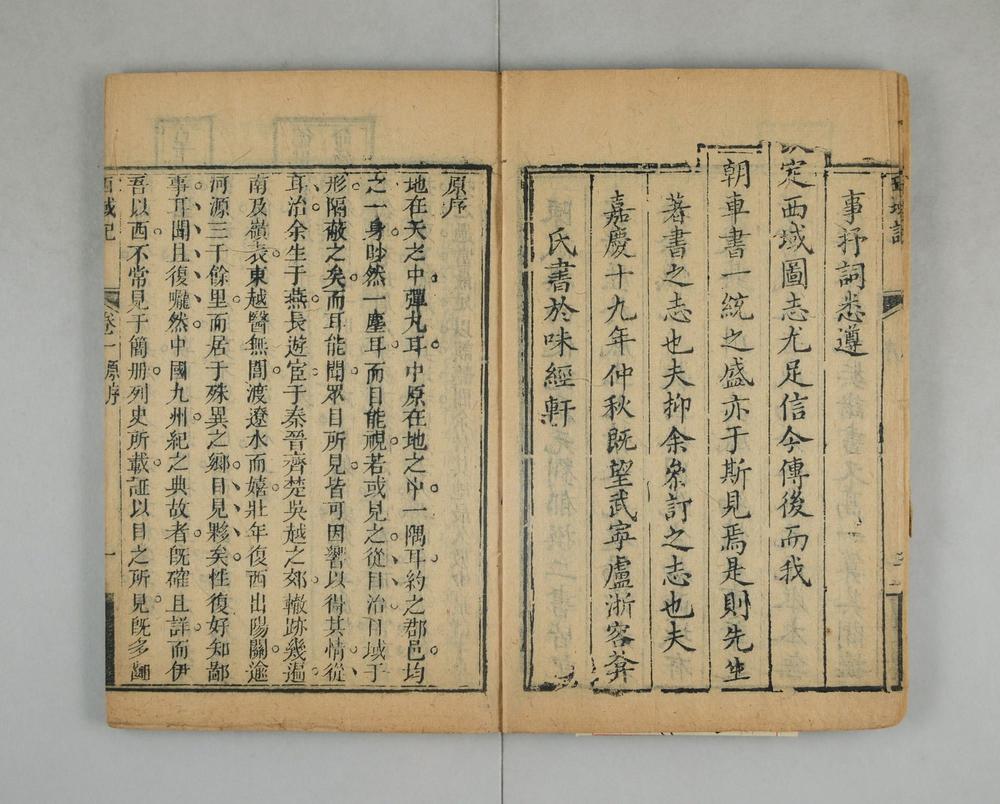 西域記
事抒詞悉遵
定西域圖志尤足信今傳後而我
朝車書一統之盛亦于斯見焉是則先生
著書之志也夫抑余叅訂之志也夫
嘉慶十九年仲秋既望武寧盧浙容菴
氏書於味經軒
原序
地在天之中彈丸耳中原在地之中一隅耳約之郡邑均
之一身眇然一塵耳而目能視若或見之從目治目域于
形隔蔽之矣而耳能聞眾目所見皆可因響以得其情從
耳治余生于燕長遊宦于秦晉齊楚吳越之郊轍跡幾遍
南及嶺表東越醫無閭渡遼水而嬉壯年復西出陽關逾
河源三千餘里而居于殊異之鄉目見夥矣性復好知鄙
事耳聞且復囖然中國九州紀之典故者既確且詳而伊
吾以西不常見于簡册列史所載証以目之所見既多
西域記
卷一原序
一